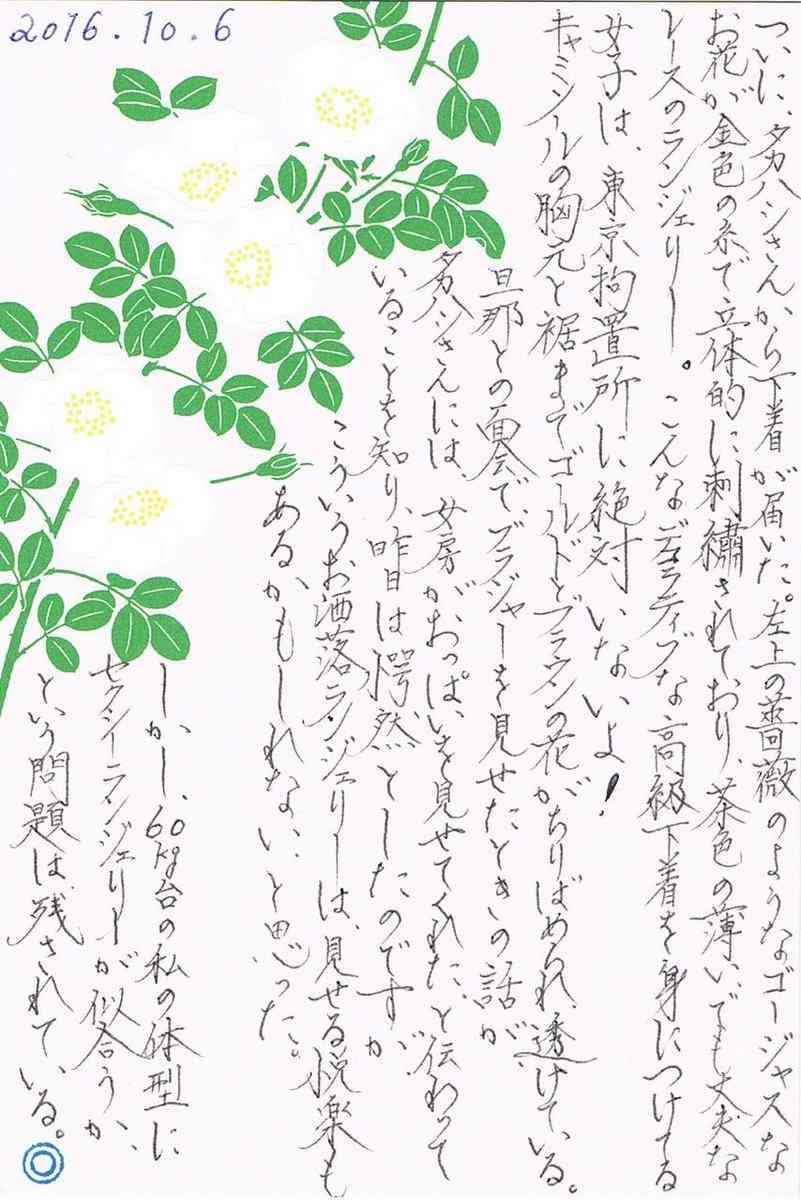 2016.10.6
ついに、タカハシさんから下着が届いた。左上の薔薇のようなゴージャスな
お花が金色の糸で立体的に刺繍されており、茶色の薄い、でも丈夫な
レースのランジェリー。こんなデコラティブな高級下着を身につけてる
女子は、東京拘置所に絶対いないよ!
キャミソールの胸元と裾までゴールドとブラウンの花がちりばめられ、透けている。
旦那との面会で、ブラジャーを見せたときの話が、
タカハシさんには、女房がおっぱいを見せてくれた、と伝わって
いることを知り、昨日は愕然としたのですが、
こういうお洒落ランジェリーは、見せる悦楽も
あるかもしれない、と思った。
しかし、60kg台の私の体型に
セクシーランジェリーが似合うか、
という問題は、残されている。